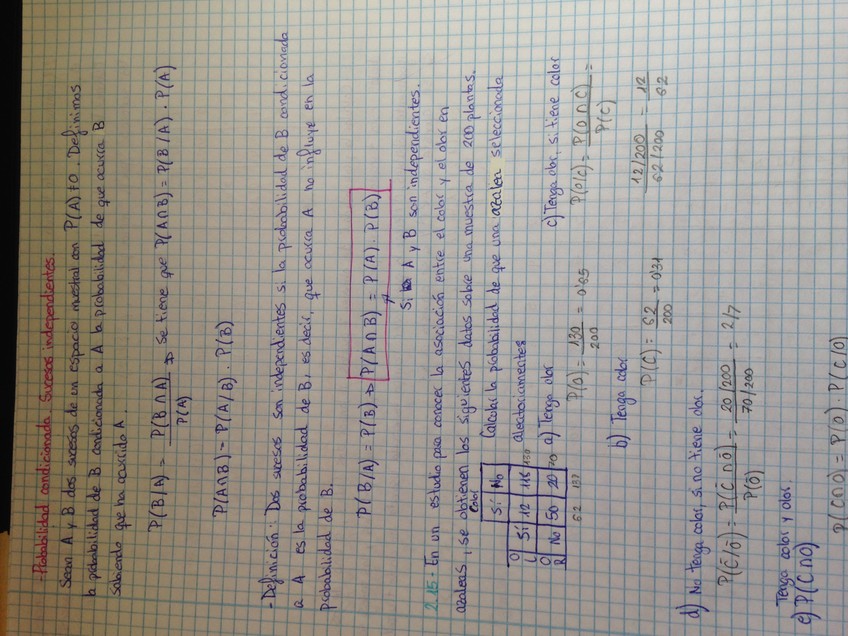 - Probabilidad condicionada. Sucesos independientes.
Sean A y B dos sucesos de un espacio muestral con P(A) ≠ 0. Definimos
la probabilidad de B condicionada a A la probabilidad de que ocurra B
sabiendo que ha ocurrido A.
P(B/A) = P(B∩A) / P(A) → Se tiene que P(A∩B) = P(B/A) · P(A)
P(A∩B) = P(A/B) · P(B)
- Definición: Dos sucesos son independientes si la probabilidad de B condicionada
a A es la probabilidad de B, es decir, que ocurra A no influye en la
probabilidad de B.
P(B/A) = P(B) → P(A∩B) = P(A) · P(B)
Si A y B son independientes.
2.15: En un estudio para conocer la asociación entre el color y el olor en
azaleas, se obtienen los siguientes datos sobre una muestra de 200 plantas.
Color
Si No
OLOR
Si 12 118 130
No 50 20 70
62
Calcular la probabilidad de que una azalea seleccionada
aleatoriamente:
a) Tenga olor
P(O) = 130/200 = 0'65
b) Tenga color
P(C) = 62/200 = 0'31
c) Tenga olor, si tiene color
P(O/C) = P(O∩C) / P(C) =
12/200 / 62/200 = 12/62
d) No tenga color, si no tiene olor.
P(C̄/Ō) = P(C̄∩Ō) / P(Ō) = 20/200 / 70/200 = 2/7
Tenga color y olor.
e) P(C∩O)
P(C∩O) = P(O) · P(C/O)